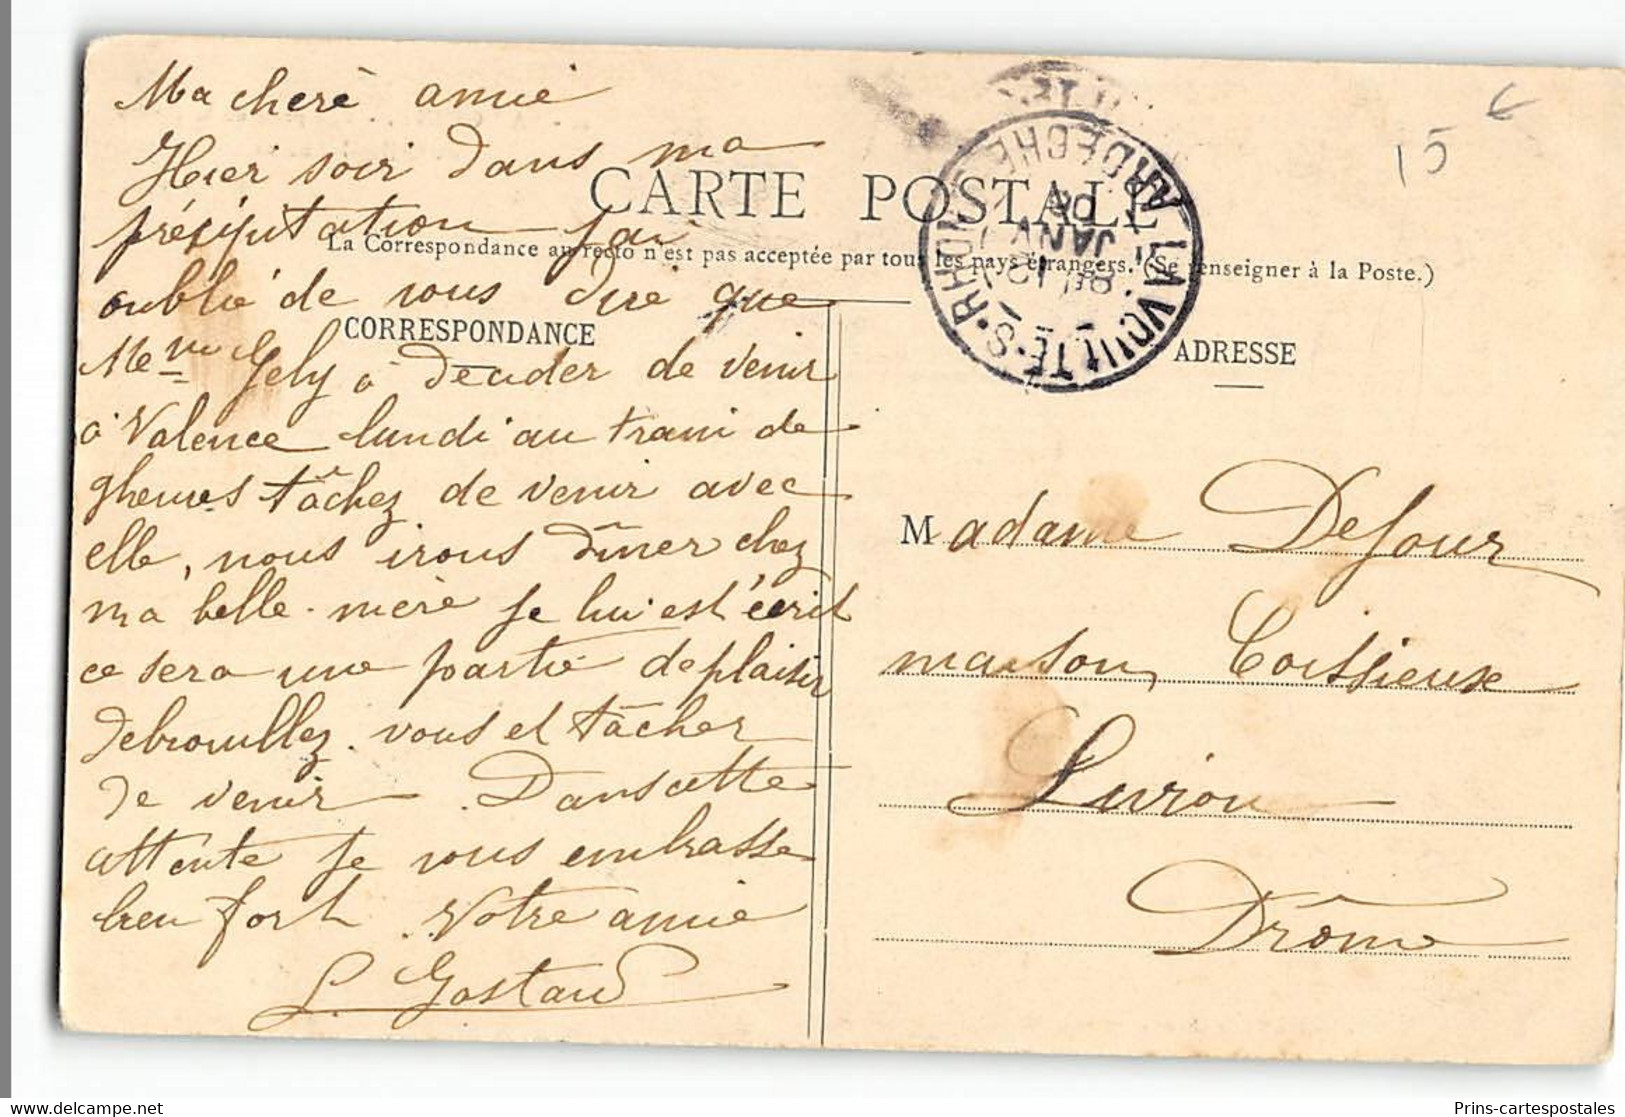 Ma cherè amie
Hier soir dans ma
présiputation jai
oublié de vous dire que
Mme Gely à decider de venir
à Valence lundi au train de
9heures tâchez de venir avec
elle, nous irons dîner chez
ma belle-mère je lui est écrit
ce sera une partie de plaisir
debrouillez-vous et tâcher
de venir. Dans cette
attente je vous embrasse
bien fort. Votre amie
L. Gostaud
CARTE POSTALE
La Correspondance au recto n'est pas acceptée par tous les pays étrangers. (Se renseigner à la Poste.)
CORRESPONDANCE
ADRESSE
LA VOULTE-S-RHONE
ARDECHE
12
JANV
08
15 €
Madame Dejour
maison Coissieux
Livron
Drôme
www.delcampe.net
Prins-cartespostales